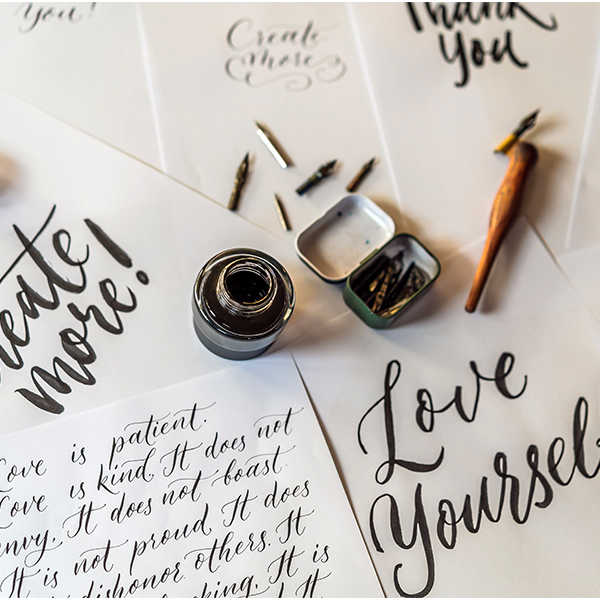 You!
Create
more
Thank
you
Create
more!
Love
Yourself
Love is patient.
Love is kind. It does not
envy. It does not boast.
It is not proud. It does
dishonor others. It
king. It is
It